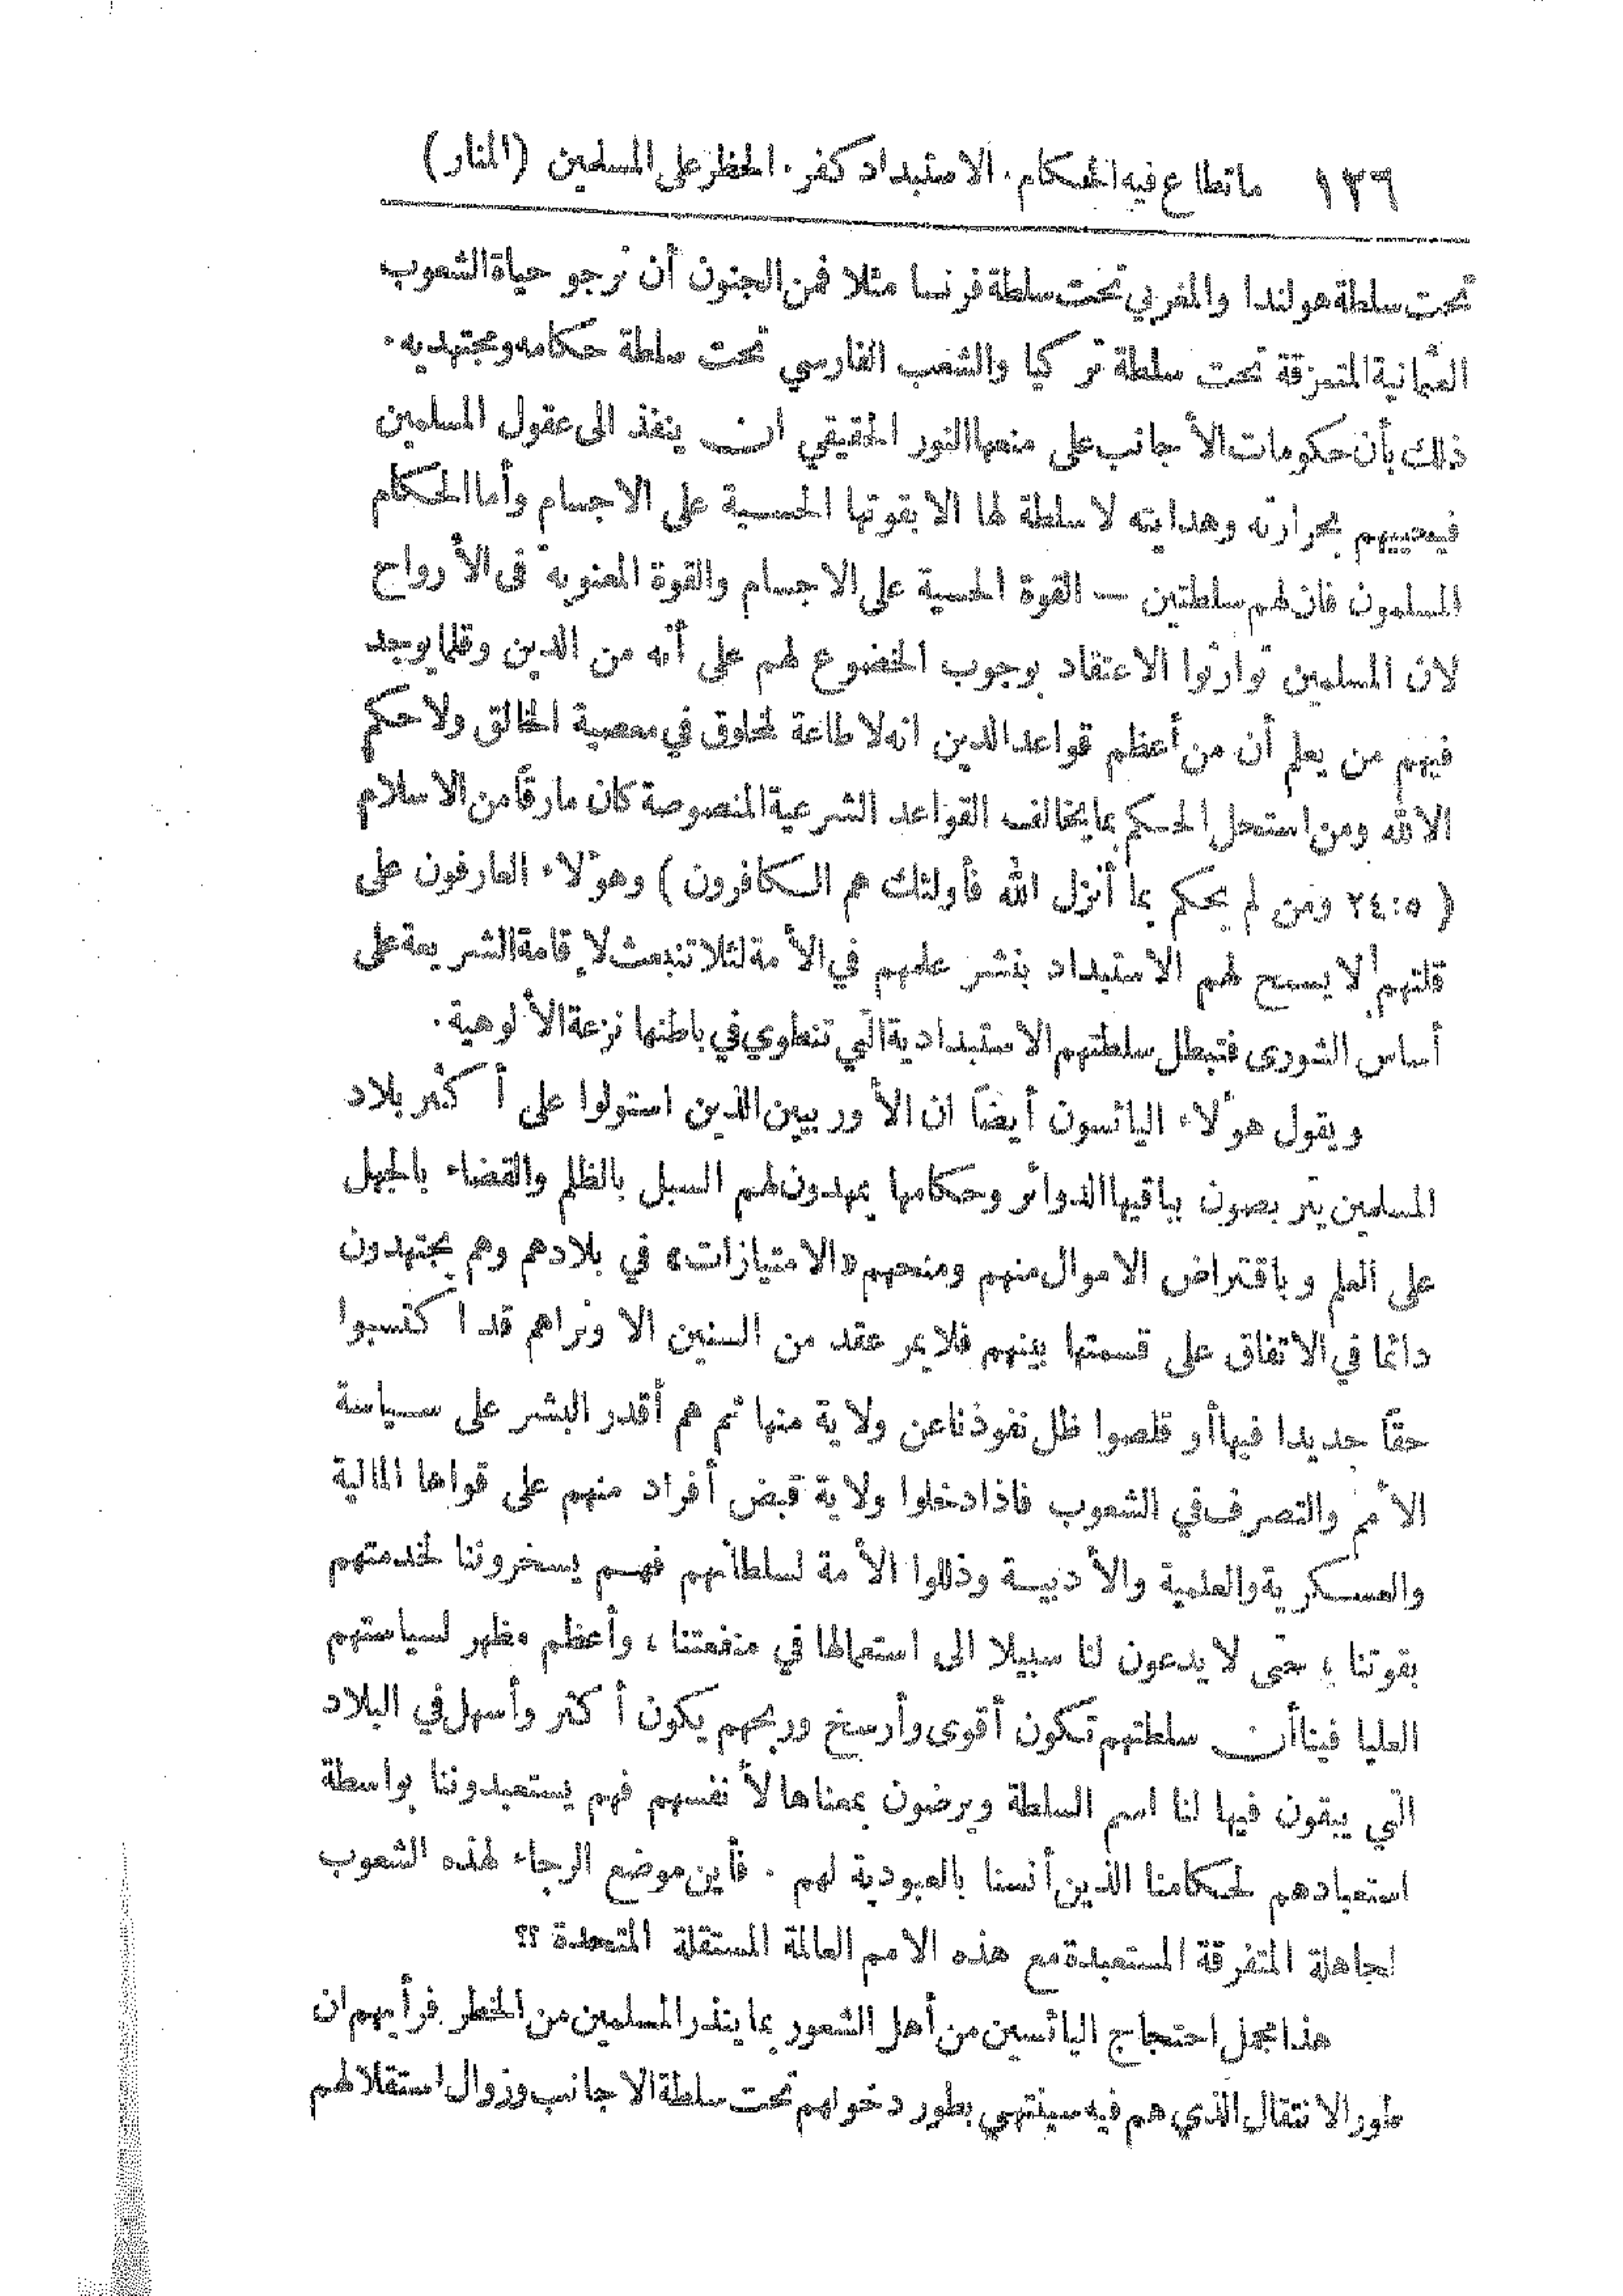 ١٢٦ ما تطاع فيه الحكام. الاستبداد كفر. الخطر على المسلمين (المنار)
تحت سلطة هولندا والمغربي تحت سلطة فرنسا مثلا فمن الجنون أن نرجو حياة الشعوب
العثمانية المتمزقة تحت سلطة تركيا والشعب الفارسي تحت سلطة حكامه ومجتهديه.
ذلك بأن حكومات الأجانب على منعها النور الحقيقي ان ينفذ الى عقول المسلمين
فيحييهم بحرارته وهدايته لا سلطة لها الا بقوتها الحسية على الاجسام وأما الحكام
المسلمون فان لهم سلطتين — القوة الحسية على الاجسام والقوة المعنوية في الأرواح
لان المسلمين توارثوا الاعتقاد بوجوب الخضوع لهم على أنه من الدين وقلما يوجد
فيهم من يعلم أن من أعظم قواعد الدين انه لا طاعة لمخلوق في معصية الخالق ولا حكم
الا لله ومن استحل الحكم بما يخالف القواعد الشرعية المنصوصة كان مارقًا من الاسلام
( ٥:٢٤ ومن لم يحكم بما أنزل الله فأولئك هم الكافرون ) وهؤلاء العارفون على
قلتهم لا يسمح لهم الاستبداد بنشر علمهم في الأمة لئلا تنبعث لإقامة الشريعة على
أساس الشورى فتبطل سلطتهم الاستبدادية التي تنطوي في باطنها نزعة الألوهية.
ويقول هؤلاء اليائسون أيضًا ان الأوربيين الذين استولوا على أكثر بلاد
المسلمين يتربصون بباقيها الدوائر وحكامها يمهدون لهم السبل بالظلم والقضاء بالجهل
على العلم وباقتراض الاموال منهم ومنحهم «الامتيازات» في بلادهم وهم يجتهدون
دائما في الاتفاق على قسمتها بينهم فلا يمر عقد من السنين الا ونراهم قد اكتسبوا
حقًا جديدا فيها أو قلصوا ظل نفوذنا عن ولاية منها ثم هم أقدر البشر على سياسة
الأمم والتصرف في الشعوب فاذا دخلوا ولاية قبض أفراد منهم على قواها المالية
والعسكرية والعلمية والأدبية وذللوا الأمة لسلطانهم فهم يسخروننا لخدمتهم
بقوتنا ، حتى لا يدعون لنا سبيلا الى استعمالها في منفعتنا ، وأعظم مظهر لسياستهم
العليا فينا أن سلطتهم تكون أقوى وأرسخ وربحهم يكون أكثر وأسهل في البلاد
التي يبقون فيها لنا اسم السلطة ويرضون بمعناها لأنفسهم فهم يستعبدوننا بواسطة
استعبادهم لحكامنا الذين أنسنا بالعبودية لهم . فأين موضع الرجاء لهذه الشعوب
لجاهلة المتفرقة المستعبدة مع هذه الامم العالمة المستقلة المتحدة ؟؟
هذا مجمل احتجاج اليائسين من أهل الشعور بما ينذر المسلمين من الخطر فرأيهم ان
طور الانتقال الذي هم فيه سينتهي بطور دخولهم تحت سلطة الاجانب وزوال استقلالهم